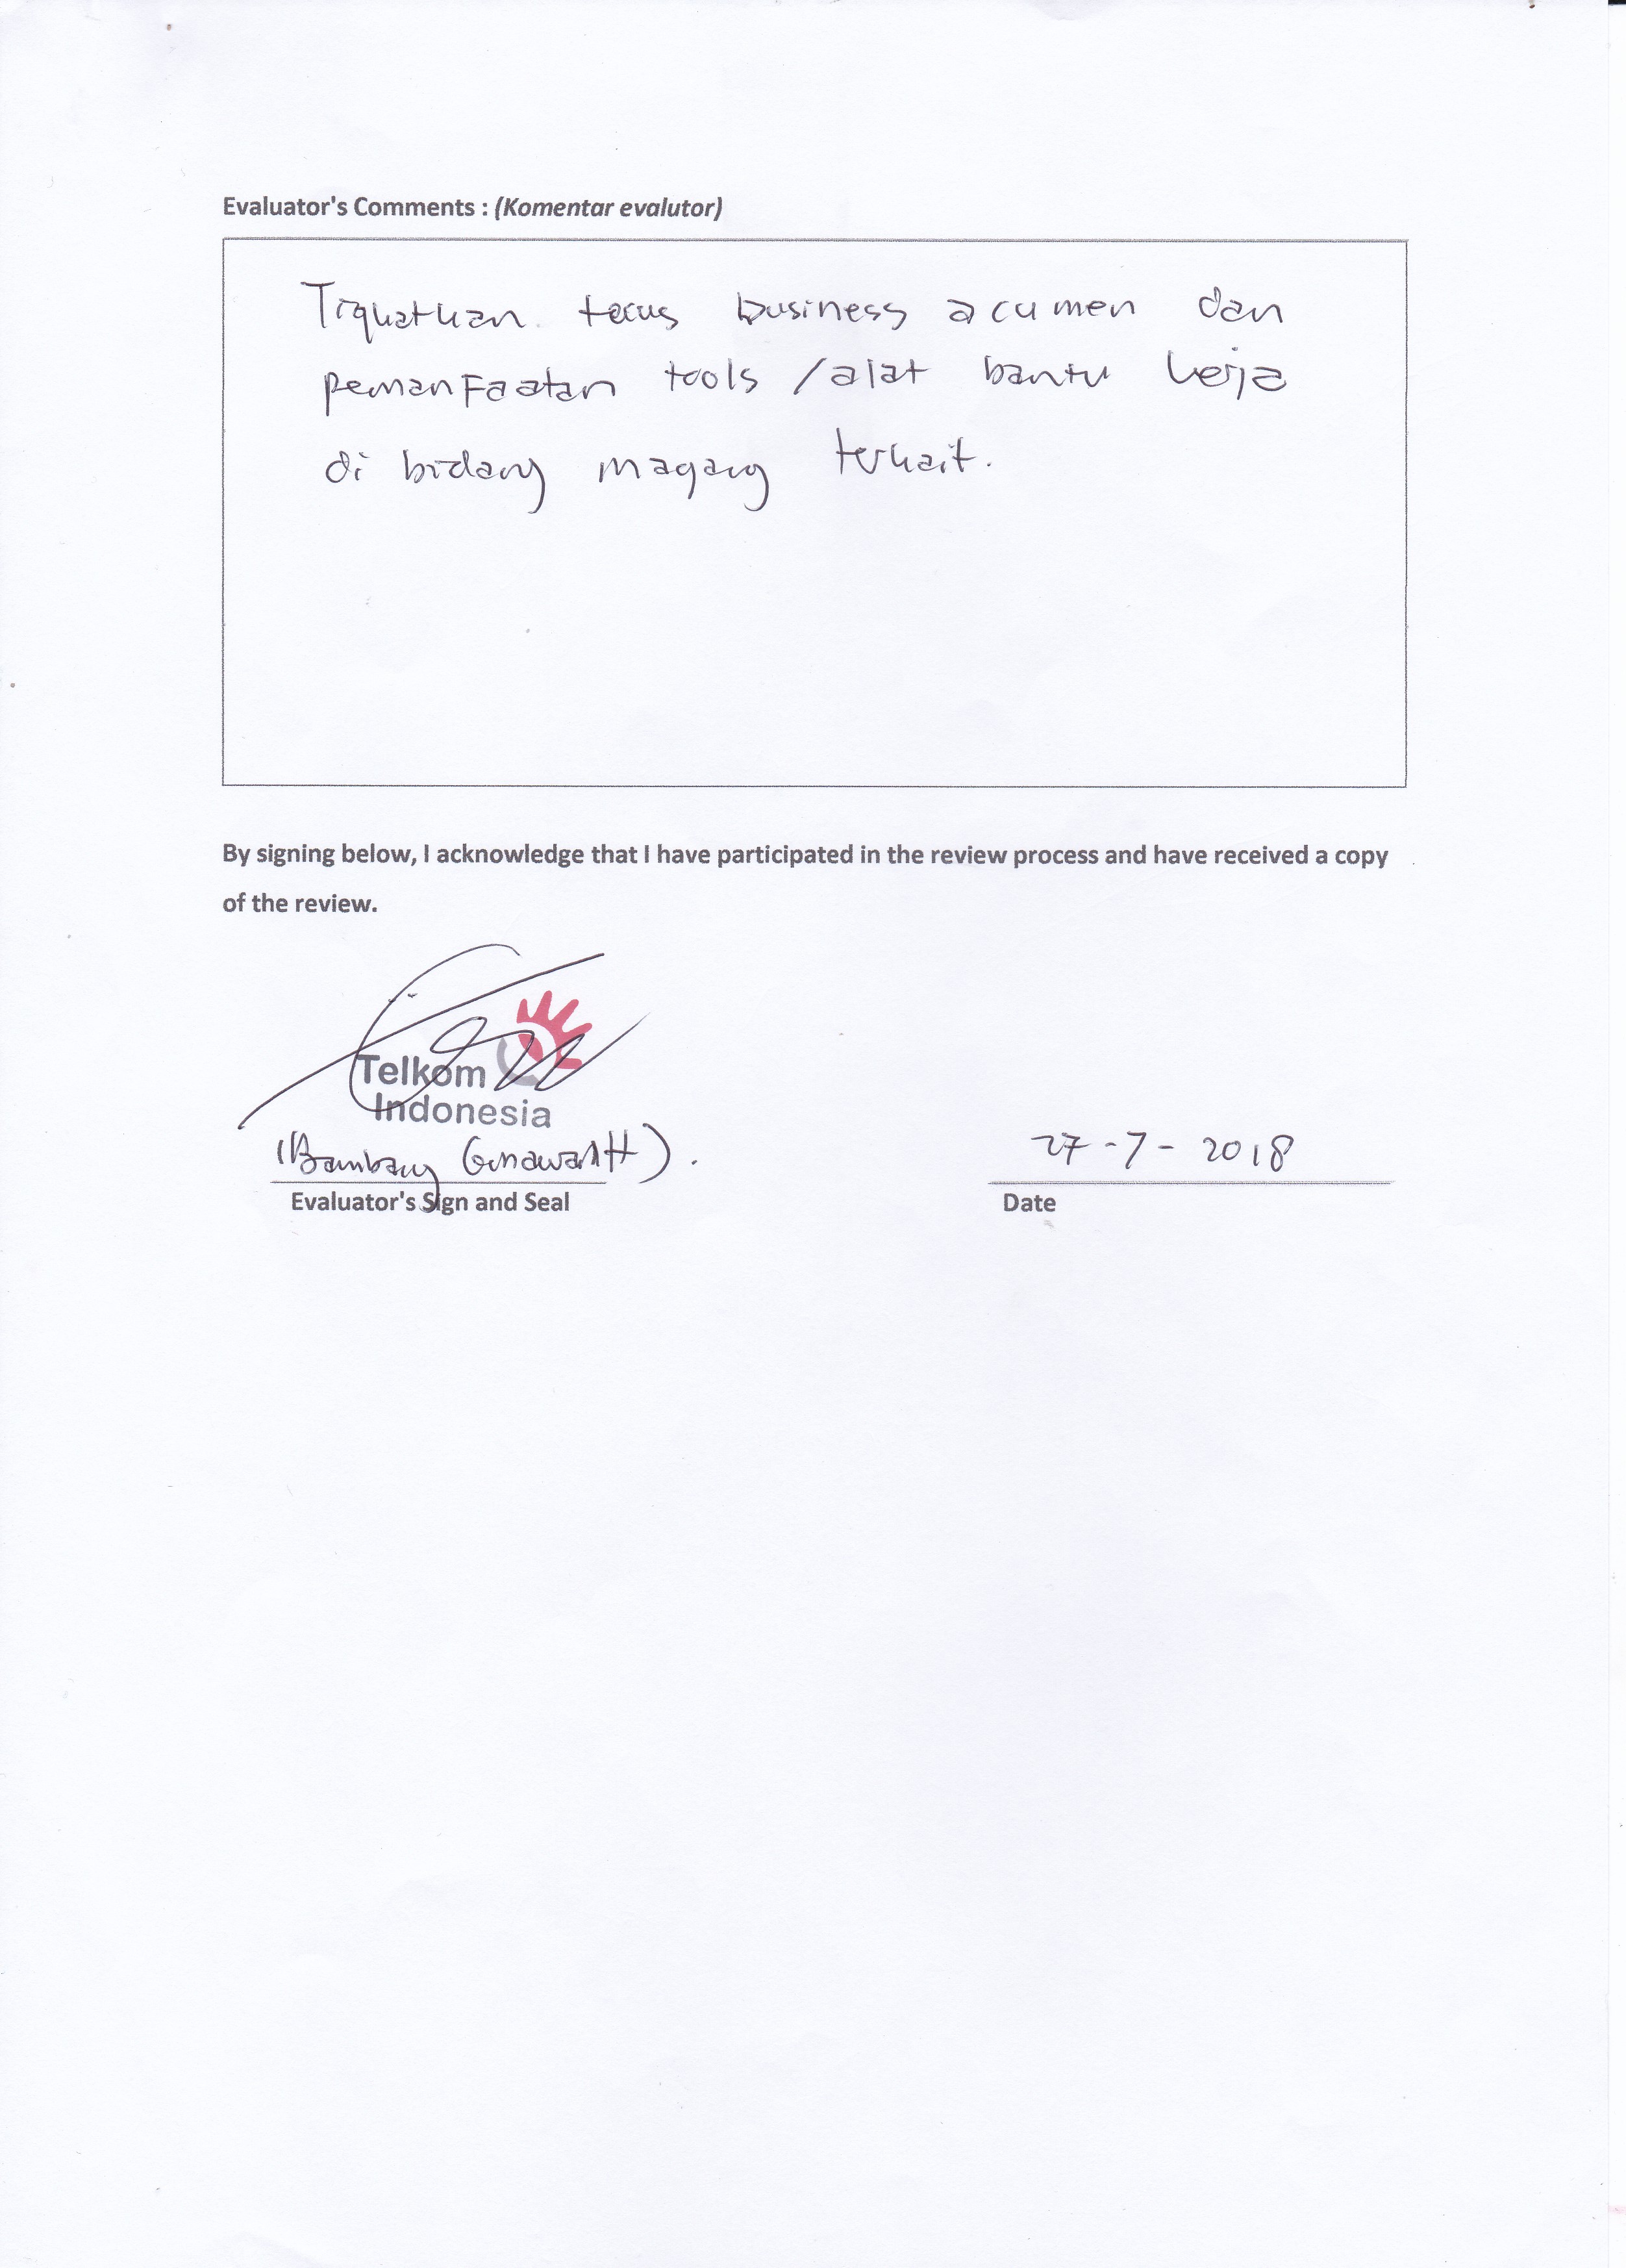 Evaluator's Comments : (Komentar evalutor)
Tingkatkan terus business acumen dan
pemanfaatan tools / alat bantu kerja
di bidang magang terkait.
By signing below, I acknowledge that I have participated in the review process and have received a copy
of the review.
Telkom
Indonesia
(Bambang Gunawan H).
27-7-2018
Evaluator's Sign and Seal
Date